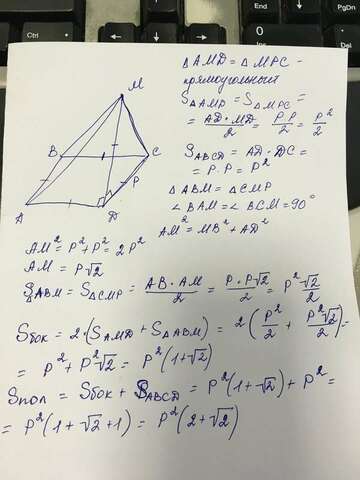 M
B
C
A
D
P
△AMD = △MPC -
прямоугольный
S△AMP = S△MPC =
= AD·MD/2 = P·P/2 = P²/2
SABCD = AD·DC =
= P·P = P²
△ABM = △CMP
∠BAM = ∠BCM = 90°
AM² = MB² + AD²
AM² = P² + P² = 2P²
AM = P√2
S△ABM = S△CMP = AB·AM/2 = P·P√2/2 = P²√2/2
Sбок = 2·(SAMD + S△ABM) = 2(P²/2 + P²√2/2) =
= P² + P²√2 = P²(1+√2)
Sпол = Sбок + SABCD = P²(1+√2) + P² =
= P²(1+√2+1) = P²(2+√2)
Ctrl
0
Ins
Del
Enter
PgDn